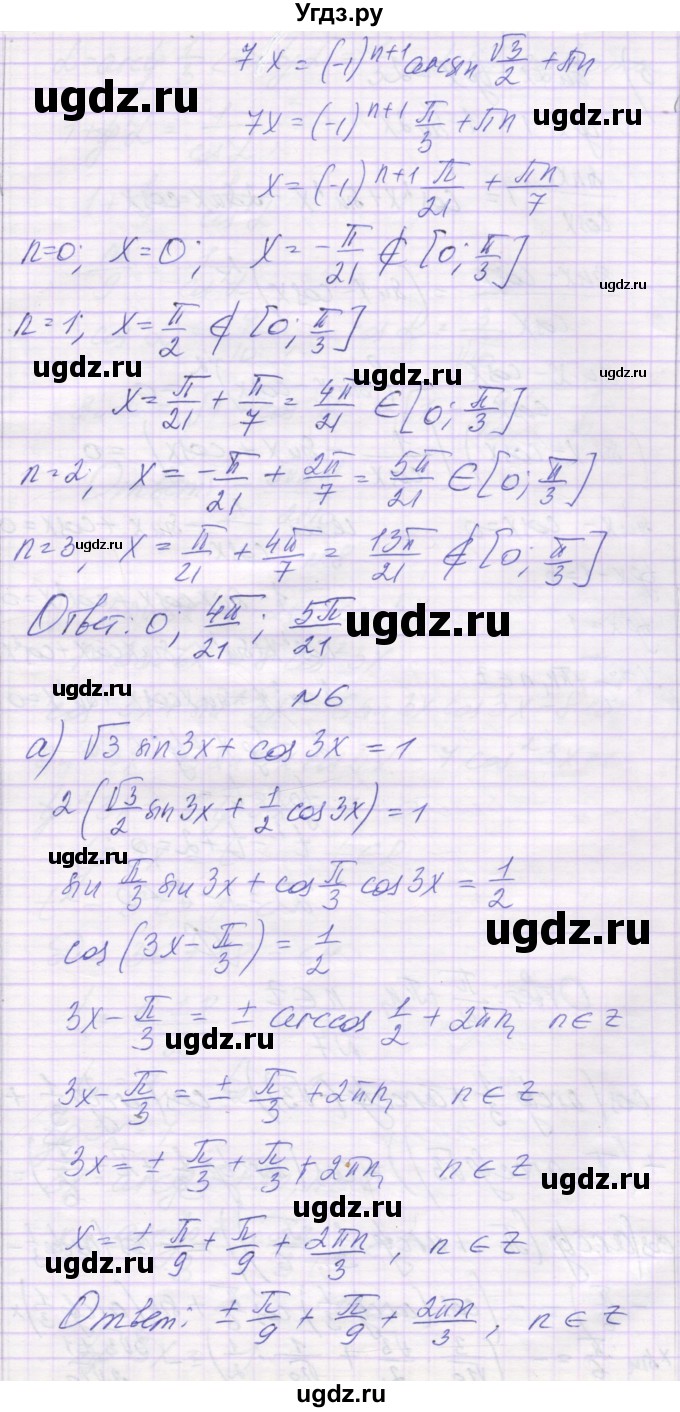 Угдз.ру
7x = (-1)^{n+1} arcsin √3/2 + πn
ugdz.ru
7x = (-1)^{n+1} π/3 + πn ugdz.ru
x = (-1)^{n+1} π/21 + πn/7
n=0; x=0; x = -π/21 ∉ [0; π/3]
ugdz.ru
n=1; x = π/2 ∉ [0; π/3]
ugdz.ru ugdz.ru
x = π/21 + π/7 = 4π/21 ∈ [0; π/3]
n=2; x = -π/21 + 2π/7 = 5π/21 ∈ [0; π/3]
n=3; ugdz.ru x = π/21 + 4π/7 = 13π/21 ∉ [0; π/3]
Ответ: 0; 4π/21; 5π/21 ugdz.ru
ugdz.ru №6
а) √3 sin 3x + cos 3x = 1
2(√3/2 sin 3x + 1/2 cos 3x) = 1
ugdz.ru
sin π/3 sin 3x + cos π/3 cos 3x = 1/2
ugdz.ru
cos(3x - π/3) = 1/2
3x - π/3 = ± arccos 1/2 + 2πn, n ∈ Z
ugdz.ru
3x - π/3 = ± π/3 + 2πn, n ∈ Z
3x = ± π/3 + π/3 + 2πn, n ∈ Z
ugdz.ru
ugdz.ru
x = ± π/9 + π/9 + 2πn/3, n ∈ Z
ugdz.ru
Ответ: ± π/9 + π/9 + 2πn/3, n ∈ Z
ugdz.ru
ugdz.ru